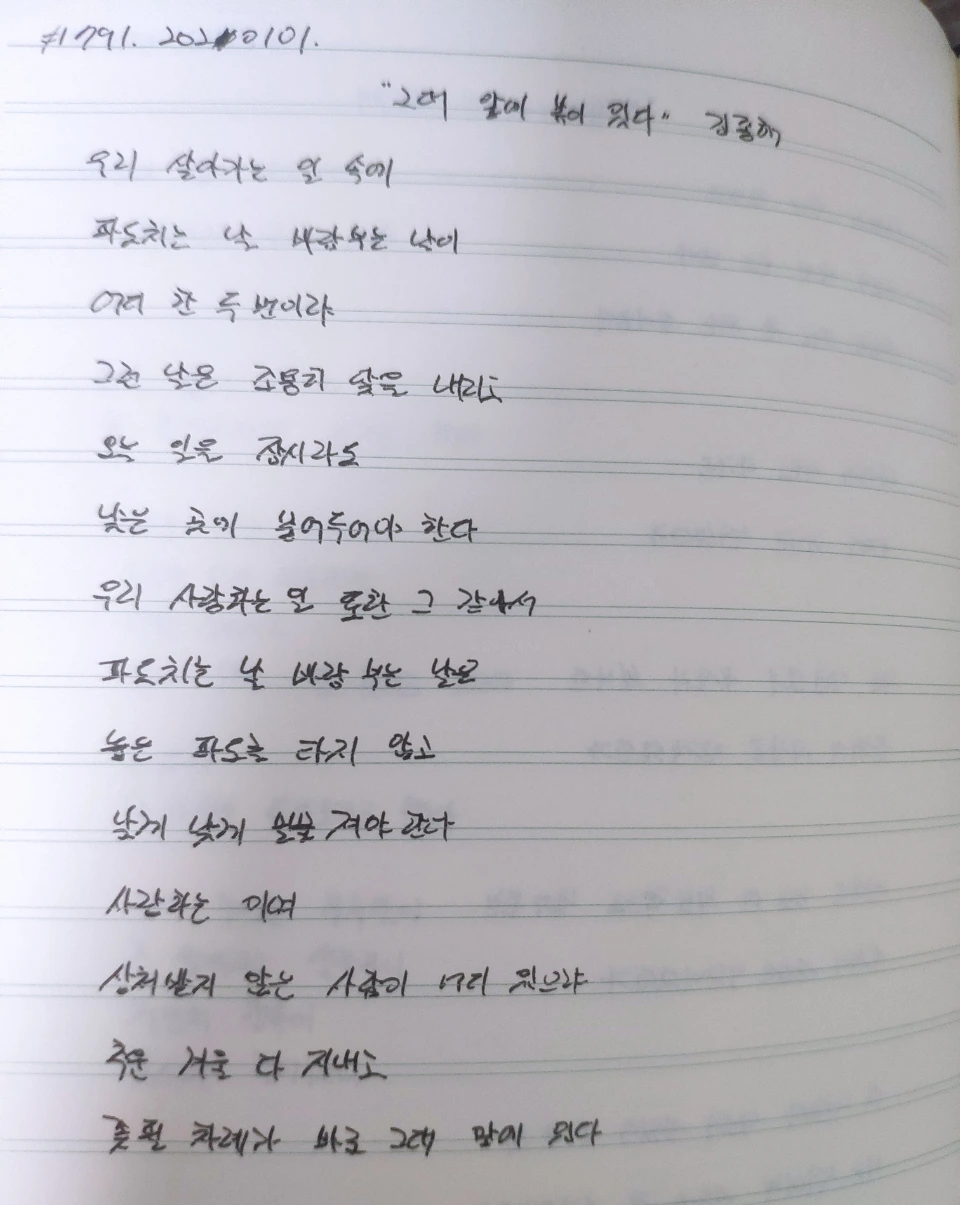 #1791. 20210101.
"그대 앞에 봄이 있다" 김종해
우리 살아가는 일 속에
파도치는 날 바람부는 날이
어디 한 두 번이랴
그런 날은 조용히 닻을 내리고
오늘 일을 잠시라도
낮은 곳에 묻어두어야 한다
우리 사랑하는 일 또한 그 같아서
파도치는 날 바람 부는 날은
높은 파도를 타지 않고
낮게 낮게 밀물 져야 한다
사랑하는 이여
상처받지 않은 사람이 어디 있으랴
추운 겨울 다 지내고
꽃필 차례가 바로 그대 앞에 있다